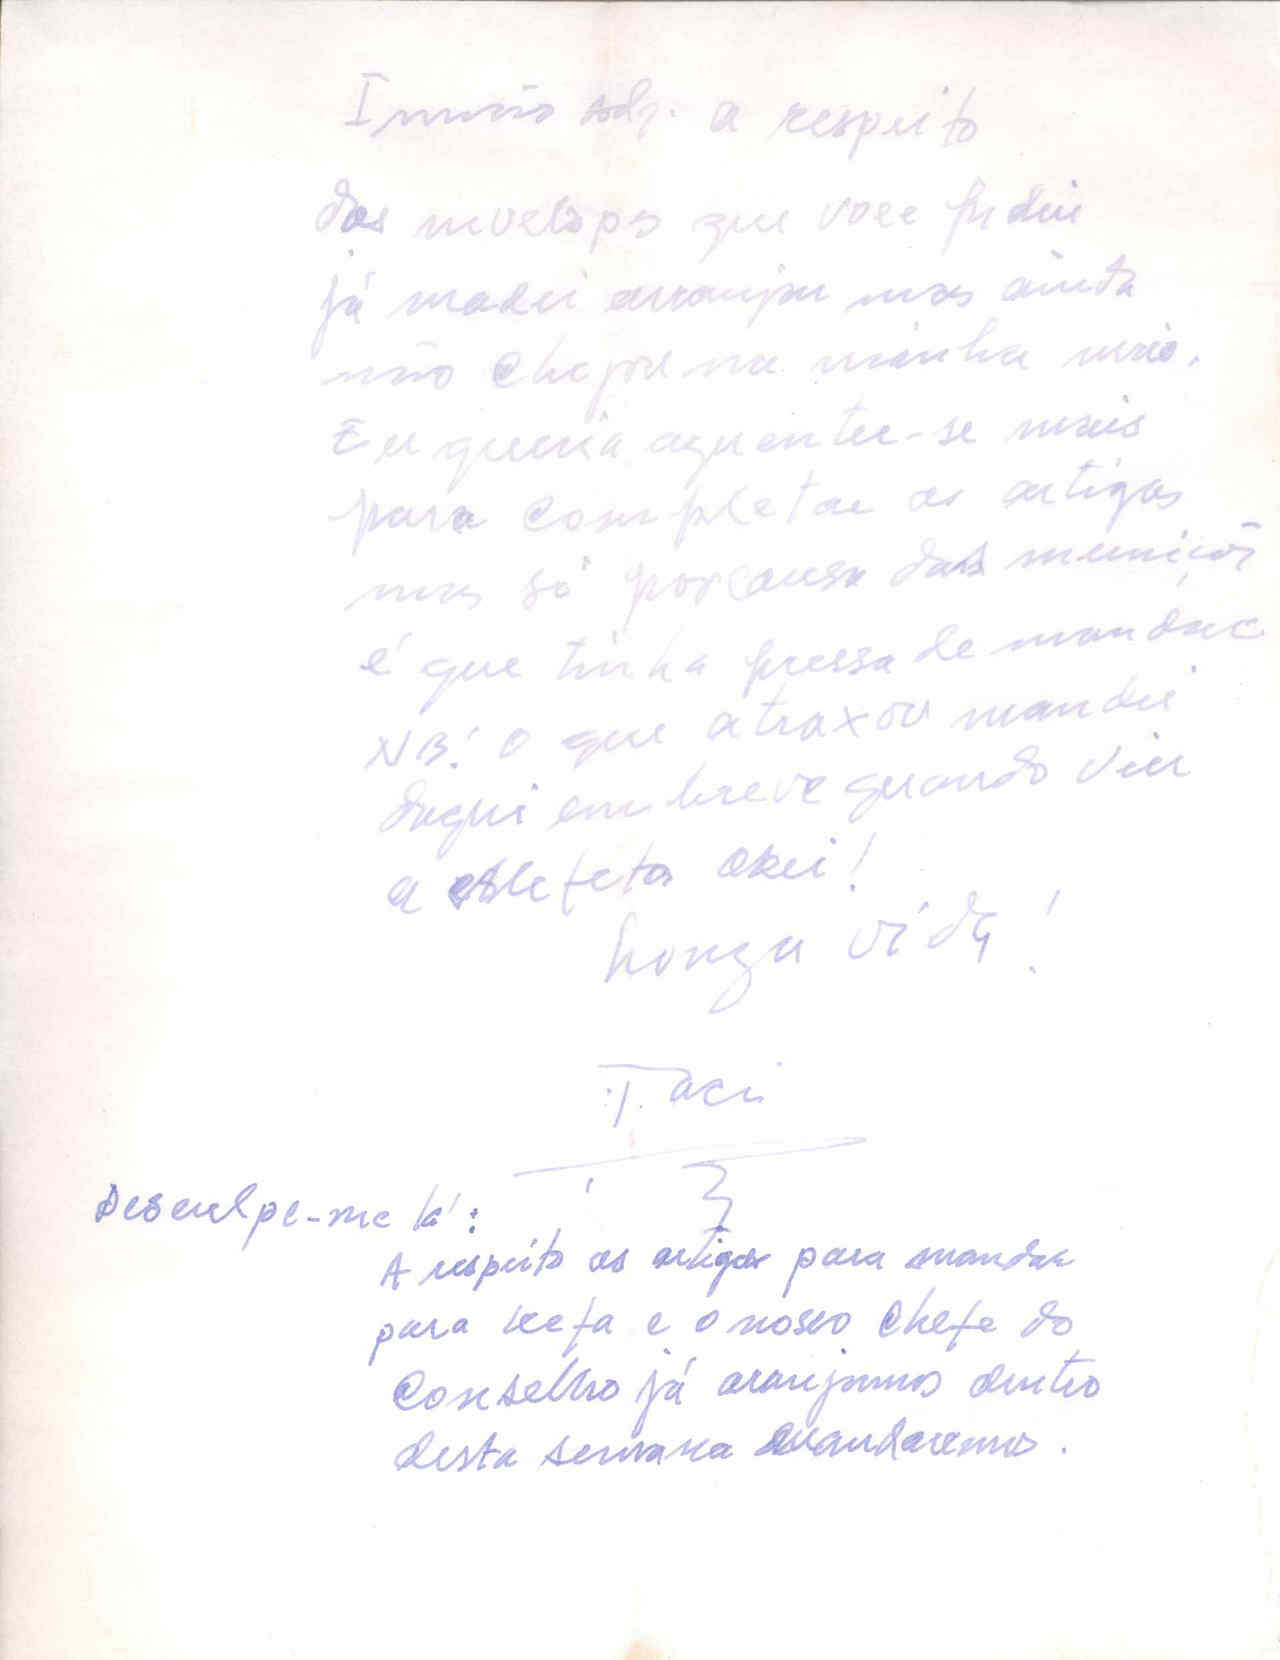 Irmão adj. a respeito
dos envelops que voce pediu
já madei arranjar mas ainta
não chegou na minha mão.
Eu queria aguentar-se mais
para completar os artigos
mas só por causa das muniçõs
é que tinha pressa de mandar
NB: O que atraxou mandei
daqui em breve quando vier
a estafeta okei!
Longa vida!
Taci
Desculpe-me lá:
A respeito os artigos para mandar
para e o nosso Chefe do
Conselho já aranjamos dentro
desta semana mandaremos.